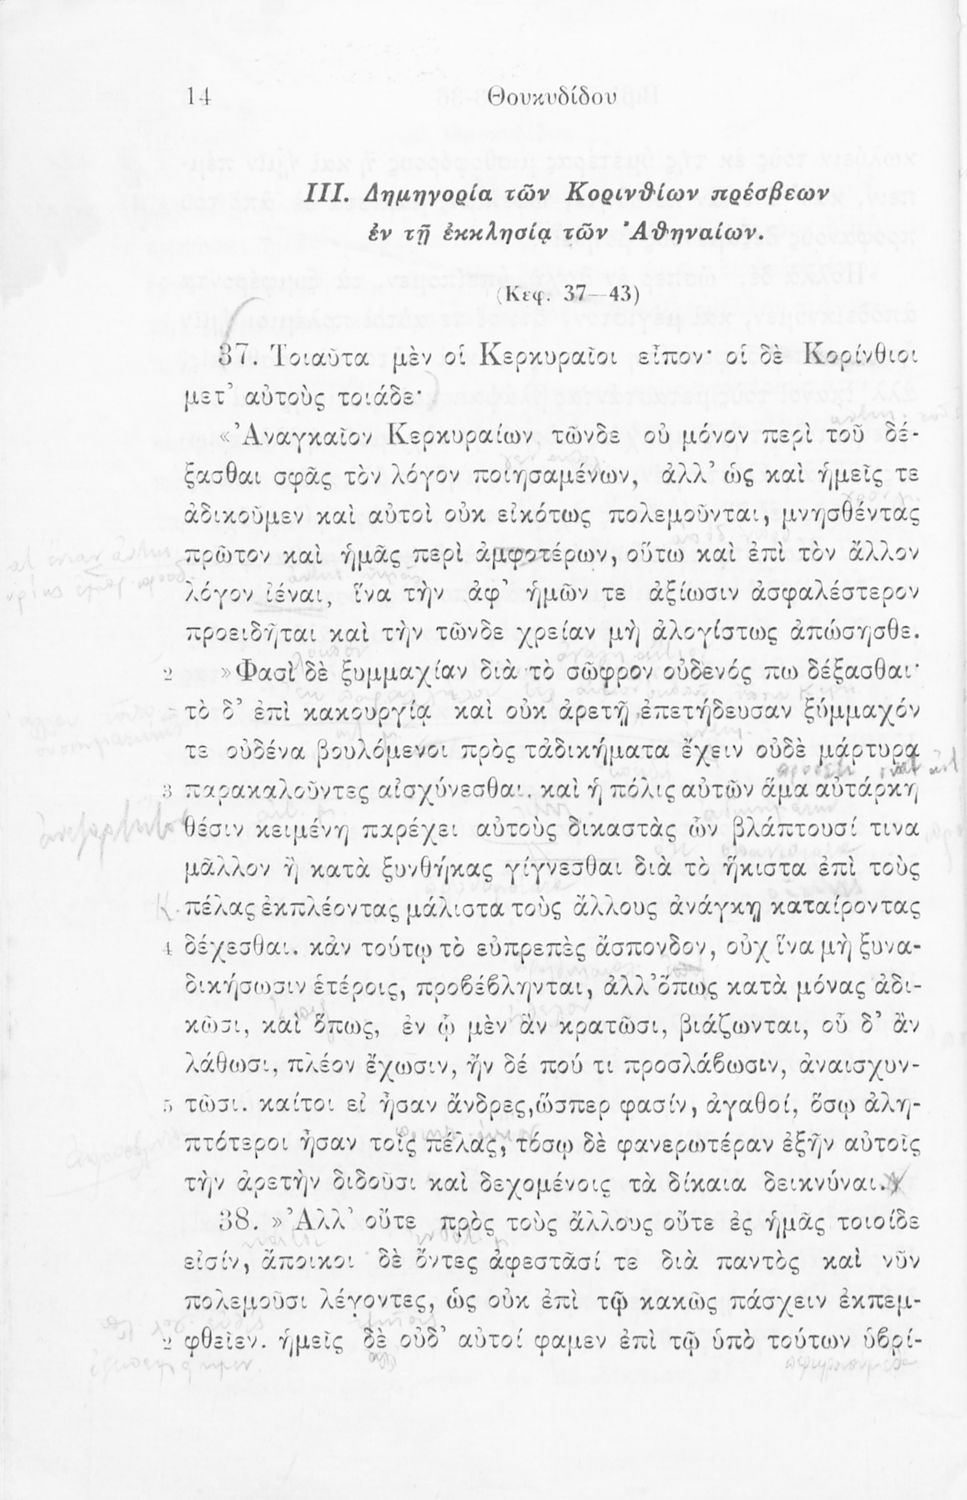 14 Θουκυδίδου
III. Δημηγορία τῶν Κορινθίων πρέσβεων
ἐν τῇ ἐκκλησίᾳ τῶν Ἀθηναίων.
(Κεφ. 37—43)
37. Τοιαῦτα μὲν οἱ Κερκυραῖοι εἶπον· οἱ δὲ Κορίνθιοι
μετ’ αὐτοὺς τοιάδε·
«Ἀναγκαῖον Κερκυραίων τῶνδε οὐ μόνον περὶ τοῦ δέ-
ξασθαι σφᾶς τὸν λόγον ποιησαμένων, ἀλλ’ ὡς καὶ ἡμεῖς τε
ἀδικοῦμεν καὶ αὐτοὶ οὐκ εἰκότως πολεμοῦνται, μνησθέντας
πρῶτον καὶ ἡμᾶς περὶ ἀμφοτέρων, οὕτω καὶ ἐπὶ τὸν ἄλλον
λόγον ἰέναι, ἵνα τὴν ἀφ’ ἡμῶν τε ἀξίωσιν ἀσφαλέστερον
προειδῆται καὶ τὴν τῶνδε χρείαν μὴ ἀλογίστως ἀπώσησθε.
2 »Φασὶ δὲ ξυμμαχίαν διὰ τὸ σῶφρον οὐδενός πω δέξασθαι·
τὸ δ’ ἐπὶ κακουργίᾳ καὶ οὐκ ἀρετῇ ἐπετήδευσαν ξύμμαχόν
τε οὐδένα βουλόμενοι πρὸς τἀδικήματα ἔχειν οὐδὲ μάρτυρα
3 παρακαλοῦντες αἰσχύνεσθαι. καὶ ἡ πόλις αὐτῶν ἅμα αὐτάρκη
θέσιν κειμένη παρέχει αὐτοὺς δικαστὰς ὧν βλάπτουσί τινα
μᾶλλον ἢ κατὰ ξυνθήκας γίγνεσθαι διὰ τὸ ἥκιστα ἐπὶ τοὺς
πέλας ἐκπλέοντας μάλιστα τοὺς ἄλλους ἀνάγκῃ καταίροντας
4 δέχεσθαι. κἀν τούτῳ τὸ εὐπρεπὲς ἄσπονδον, οὐχ ἵνα μὴ ξυνα-
δικήσωσιν ἑτέροις, προβέβληνται, ἀλλ’ ὅπως κατὰ μόνας ἀδι-
κῶσι, καὶ ὅπως, ἐν ᾧ μὲν ἂν κρατῶσι, βιάζωνται, οὗ δ’ ἂν
λάθωσι, πλέον ἔχωσιν, ἢν δέ πού τι προσλάβωσιν, ἀναισχυν-
5 τῶσι. καίτοι εἰ ἦσαν ἄνδρες, ὥσπερ φασίν, ἀγαθοί, ὅσῳ ἀλη-
πτότεροι ἦσαν τοῖς πέλας, τόσῳ δὲ φανερωτέραν ἐξῆν αὐτοῖς
τὴν ἀρετὴν διδοῦσι καὶ δεχομένοις τὰ δίκαια δεικνύναι.
38. »Ἀλλ’ οὔτε πρὸς τοὺς ἄλλους οὔτε ἐς ἡμᾶς τοιοίδε
εἰσίν, ἄποικοι δὲ ὄντες ἀφεστᾶσί τε διὰ παντὸς καὶ νῦν
πολεμοῦσι λέγοντες, ὡς οὐκ ἐπὶ τῷ κακῶς πάσχειν ἐκπεμ-
2 φθεῖεν. ἡμεῖς δὲ οὐδ’ αὐτοί φαμεν ἐπὶ τῷ ὑπὸ τούτων ὑβρί-